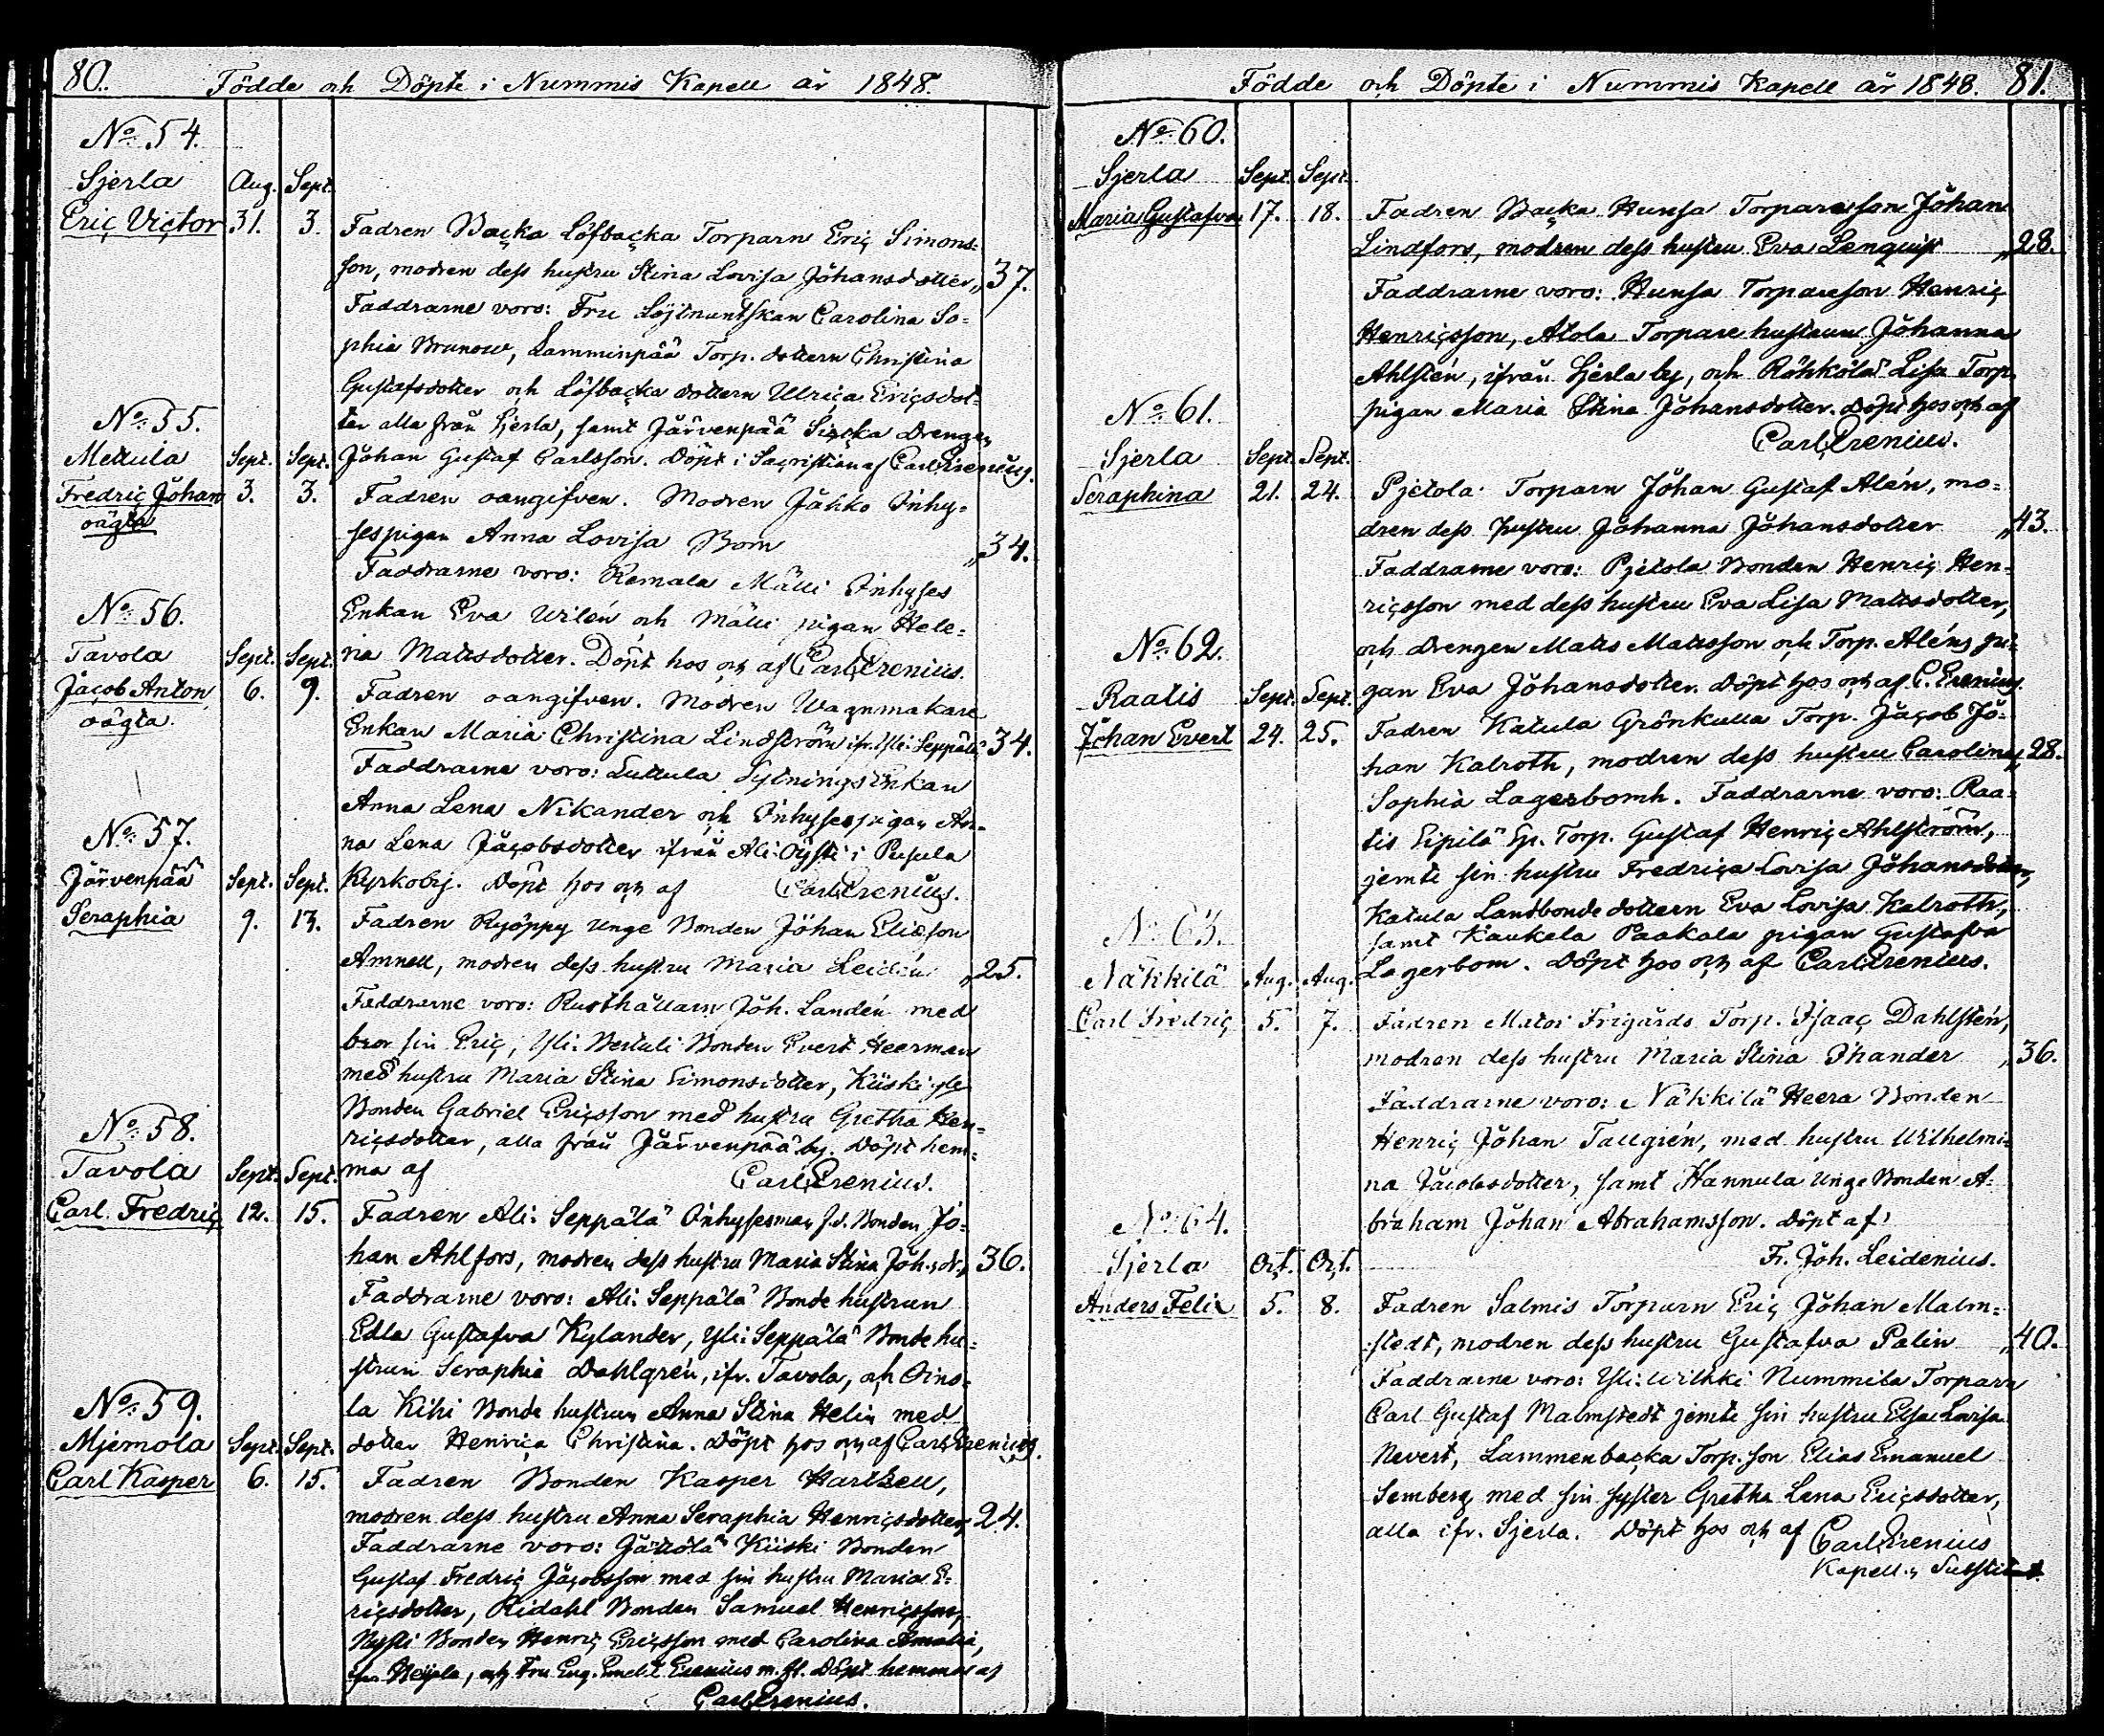 80. Födde och Döpte i Nummis Kapell år 1848.
No 54.
Sjerla Aug. Sept.
Eric Victor 31. 3. Fadren Backa Löfbacka Torparn Eric Simons-
son, modren dess hustru Stina Lovisa Johansdotter „ 37.
Faddrarne voro: Fru Löjtnantskan Carolina So-
phia Brunow, Lamminpää Torp. dottern Christina
Gustafsdotter och Löfbacka dottern Ulrica Ericsdot-
ter alla från Sjerla, samt Järvenpää Drengen
Johan Gustaf Carlsson. Döpt i Sacristian af Carl Erenius.
No 55.
Mettula Sept. Sept.
Fredric Johan 3. 3. Fadren oangifven. Modren Jakko Inhy-
oägta
sespigan Anna Lovisa Born „ 34.
Faddrarne voro: Remala Mälli Inhyses
Enkan Eva Wilén och Mälli pigan Hele-
na Mattsdotter. Döpt hos och af Carl Erenius.
No 56.
Tavola Sept. Sept.
Jacob Anton 6. 9. Fadren oangifven. Modren Wagnmakare
oägta.
Enkan Maria Christina Lindström ifr. Yli-Seppälä 34.
Faddrarne voro: Luttula Sytnings Enkan
Anna Lena Nikander och Inhysespigan An-
na Lena Jacobsdotter ifrån Ali-Öysti i Pusula
Kyrkoby. Döpt hos och af Carl Erenius.
No 57.
Järvenpää Sept. Sept.
Seraphia 9. 13. Fadren Ryöppy Unge Bonden Johan Eliæson
Amnell, modren dess hustru Maria Leidén „ 25.
Faddrarne voro: Rusthållarn Joh. Landén med
bror sin Eric, Yli-Bertuli Bonden Evert Heerman
med hustru Maria Stina Simonsdotter, Kiiski
Bonden Gabriel Ericsson med hustru Gretha Hen-
ricsdotter, alla från Järvenpää by. Döpt hem-
ma af Carl Erenius.
No 58.
Tavola Sept. Sept.
Carl Fredric 12. 15. Fadren Ali-Seppälä Inhysesman f.d. Bonden Jo-
han Ahlfors, modren dess hustru Maria Stina Joh.s dr. „ 36.
Faddrarne voro: Ali-Seppälä Bonde hustrun
Edla Gustafva Kylander, Yli-Seppälä Bonde hu-
strun Seraphia Dahlgrén, ifr. Tavola, och Oino-
la Kihi Bonde hustrun Anna Stina Helin med
dotter Henrica Christina. Döpt hos och af Carl Erenius.
No 59.
Mjemola Sept. Sept.
Carl Kasper 6. 15. Fadren Bonden Kasper Hartzell,
modren dess hustru Anna Seraphia Henricsdotter 24.
Faddrarne voro: Jättölä Kiiski Bonden
Gustaf Fredric Jacobsson med sin hustru Maria E-
ricsdotter, Ridahl Bonden Samuel Henricsson,
Nysti Bonden Henric Ericsson med Carolina Amalia,
ifr. Heijala, och Fru Eug. Erenius m. fl. Döpt hemma af
Carl Erenius.
Födde och Döpte i Nummis Kapell år 1848. 81.
No 60.
Sjerla Sept. Sept.
Maria Gustafva 17. 18. Fadren Backa Hunsa Torpareson Johan
Lindfors, modren dess hustru Eva Lenquist „ 28.
Faddrarne voro: Hunsa Torpareson Henric
Henricsson, Atola Torpare hustrun Johanna
Ahlstén, ifrån Sjerla by, och Röhkölä Lisa Torp.
pigan Maria Stina Johansdotter. Döpt hos och af
Carl Erenius.
No 61.
Sjerla Sept. Sept.
Seraphina 21. 24. Pjetola Torparn Johan Gustaf Alén, mo-
dren dess hustru Johanna Johansdotter „ 43.
Faddrarne voro: Pjetola Bonden Henric Hen-
ricsson med dess hustru Eva Lisa Mattsdotter,
och Drengen Matts Mattsson och Torp. Aléns pi-
gan Eva Johansdotter. Döpt hos och af C. Erenius.
No 62.
Raatis Sept. Sept.
Johan Evert 24. 25. Fadren Katula Grönkulla Torp. Jacob Jo-
han Kalroth, modren dess hustru Carolina „ 28.
Sophia Lagerbomh. Faddrarne voro: Raa-
tis Eipilä Sp. Torp. Gustaf Henric Ahlström,
jemte sin hustru Fredrica Lovisa Johansdotter,
Katula Landbonde dottern Eva Lovisa Kalroth,
samt Kaukela Paakala pigan Gustafva
Lagerbom. Döpt hos och af Carl Erenius.
No 63.
Näkkilä Aug. Aug.
Carl Fredric 5. 7. Fadren Matoi Frigårds Torp. Isaac Dahlstén,
modren dess hustru Maria Stina Ihander „ 36.
Faddrarne voro: Näkkilä Heera Bonden
Henric Johan Tallgrén, med hustru Wilhelmi-
na Jacobsdotter, samt Hannula Unge Bonden A-
braham Johan Abrahamsson. Döpt af
Fr. Joh. Leidenius.
No 64.
Sjerla Oct. Oct.
Anders Felix 5. 8. Fadren Salmis Torparn Eric Johan Malm-
stedt, modren dess hustru Gustafva Palin „ 40.
Faddrarne voro: Yli-Wilkki Nummila Torparn
Carl Gustaf Malmstedt jemte sin hustru Elsa Lovisa
Nevert, Lammenbacka Torp. son Elias Emanuel
Semberg med sin syster Gretha Lena Ericsdotter,
alla ifr. Sjerla. Döpt hos och af Carl Erenius
Kapell.s Substitut.